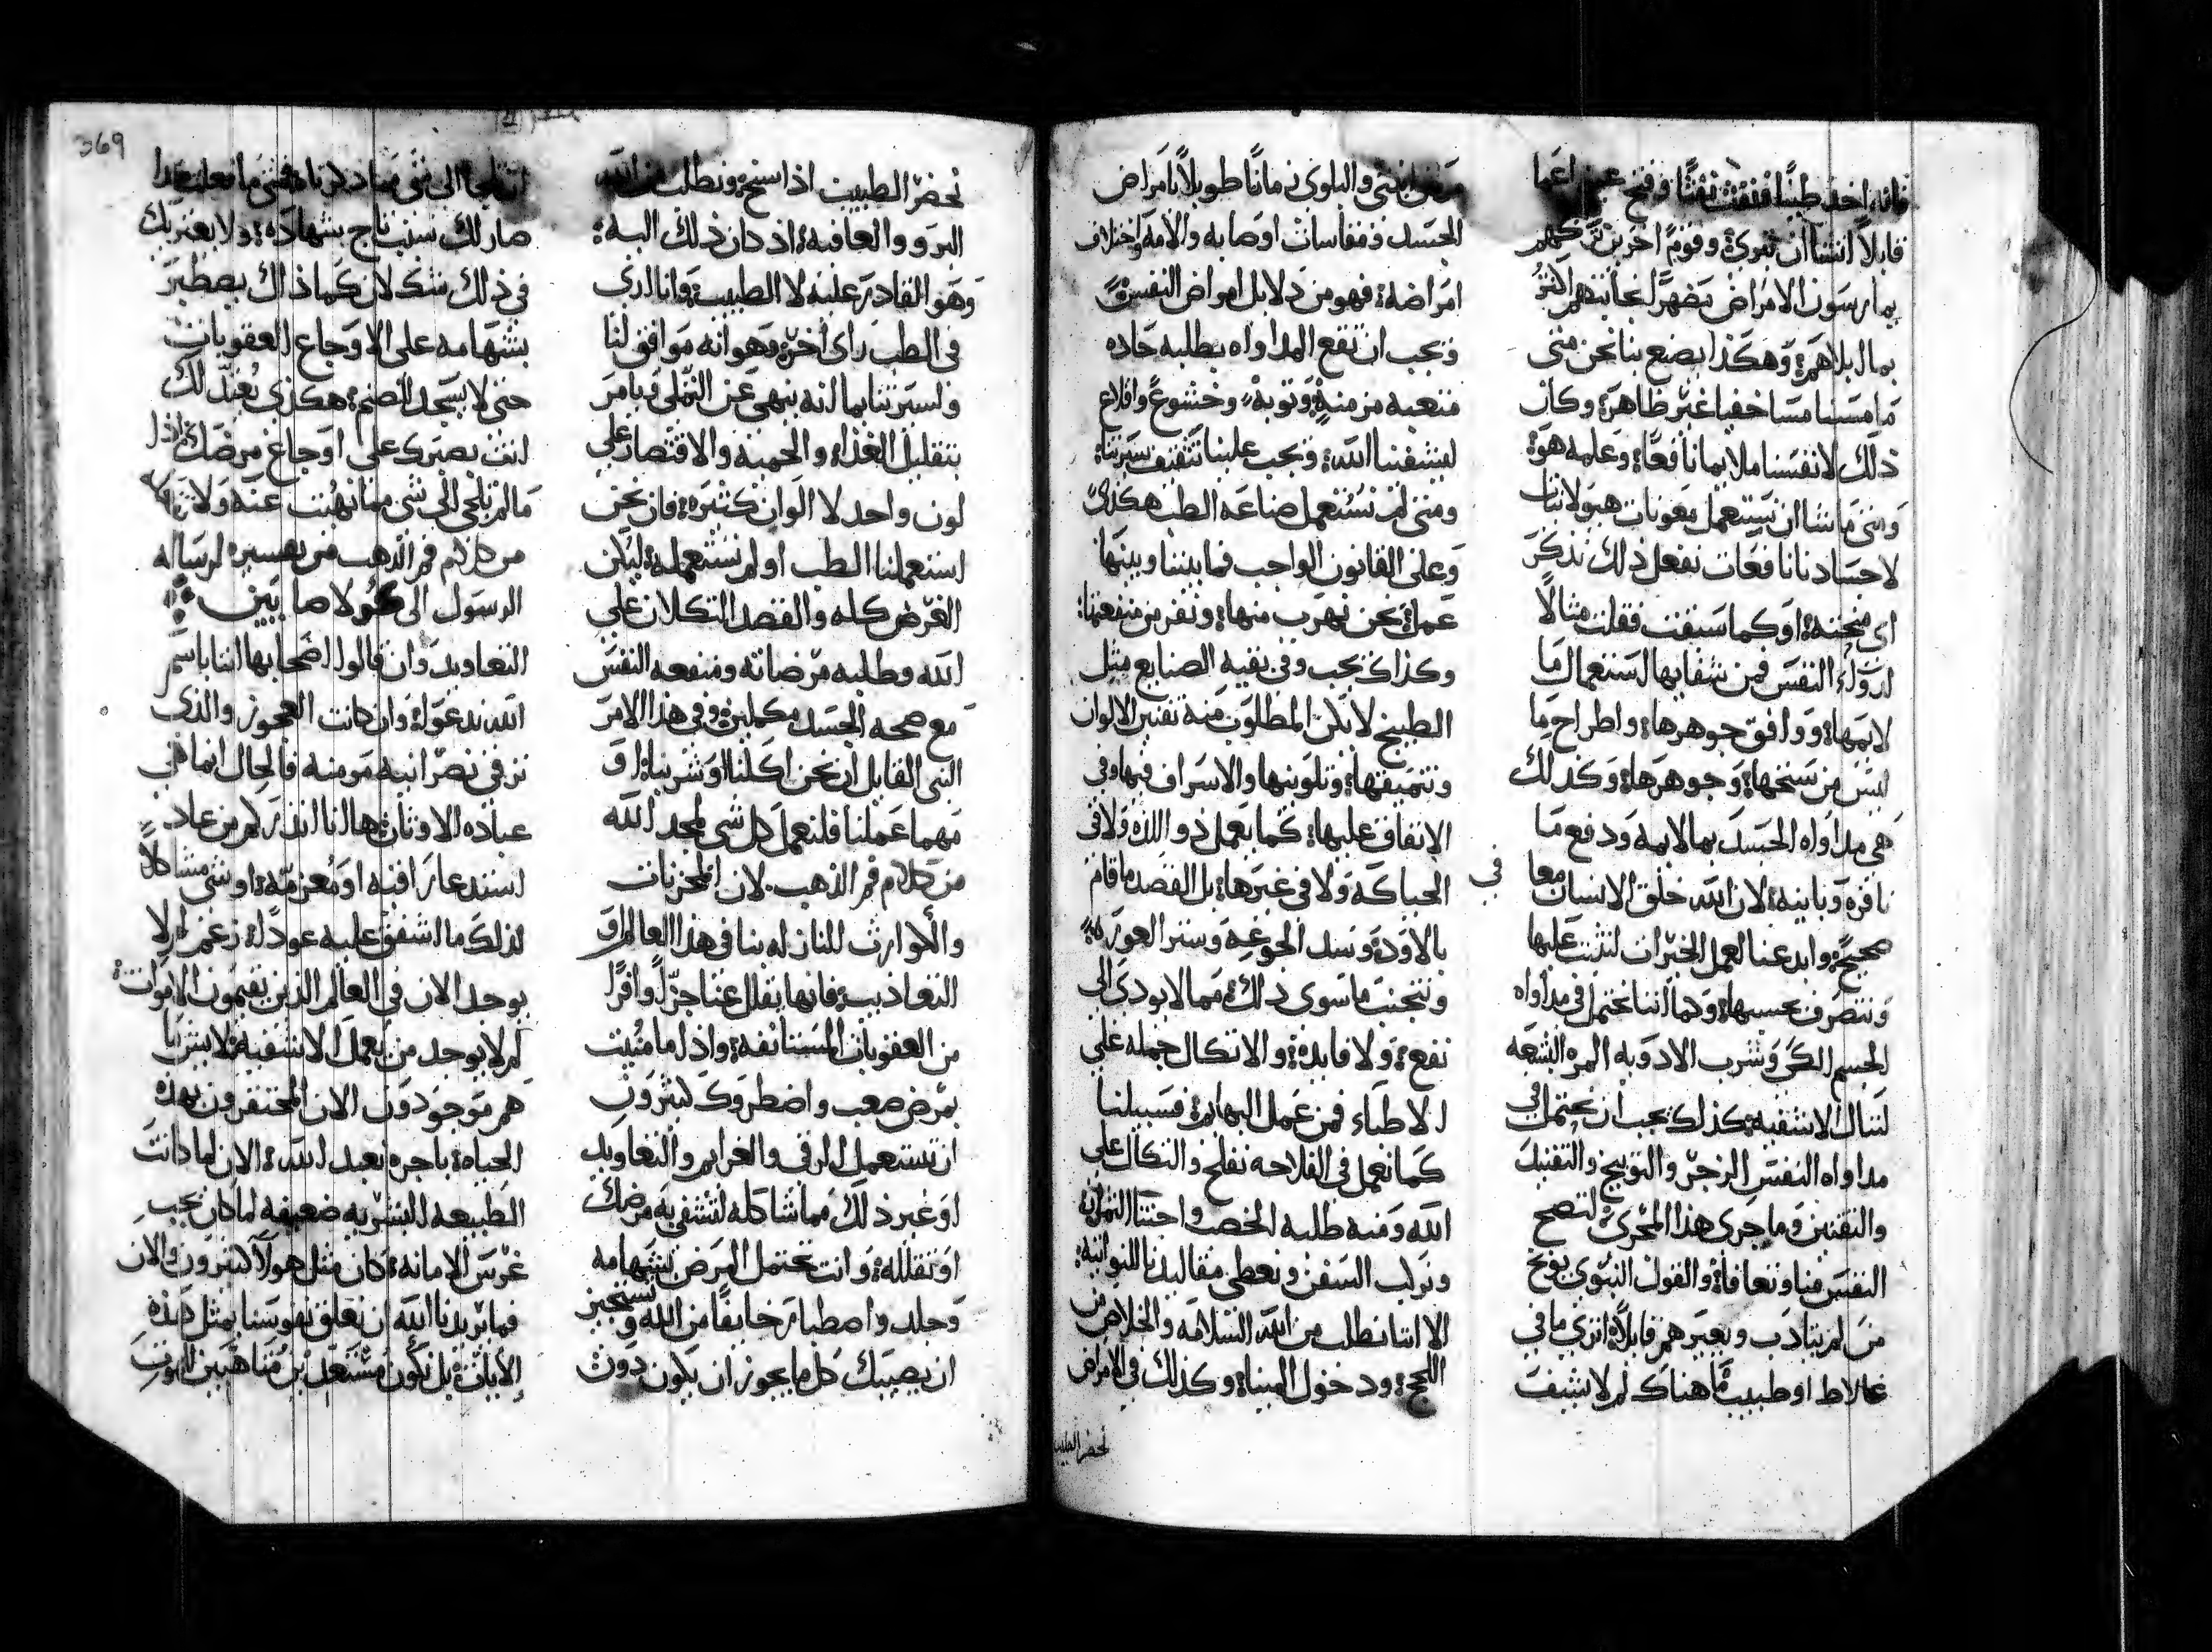 فاناء اخد طينًا فنفث نفثًا وفتح عين اعما
قايلاً اتشا ان تبرى؛ وقومًا اخرين تركهم
يمارسون الامراض مضهرًا لمحاببهم اكثر
بما ابلاهم؛ وهكذا يصنع بنا نحن متى
ما مسنا مسا خفيا غير ظاهر؛ وكان
ذلك لانفسنا ملايما نافعًا؛ وعلمه هو؛
ومتى ما شا ان نستعمل معونات هيولانيات
لاجسادنا نافعات نفعل ذلك تذكر
اي محنه؛ او كما سبقت فقلت مثالاً
لدواء النفس فمن شفايها استعمال ما
لايمها؛ ووافق جوهرها؛ واطراح ما
ليس من سنخها؛ وجوهرها؛ وكذلك
هي مداواه الجسد بما لايمه ودفع ما
نافره وباينه؛ لان الله خلق الانسان معا
صحيح؛ وابدعنا لعمل الخيرات لنثبت عليها
ونتصرف بحسبها؛ وكما اننا نحتمل في مداواه
الجسم الكي وشرب الادويه المره البشعه
لننال الاشفيه؛ كذلك يجب ان نحتمل في
مداواه النفس الزجر والتوبيخ والتفنيد
والتقنين وما جرى هذا المجرى؛ لتصح
النفس منا وتعافا؛ والقول النبوي يوبخ
من لم يتادب ويعيرهم قايلاً؛ اترى ما في
غلاط او طبيب ما هناك لم لا يشف
من الجني والبلوى زمانًا طويلاً بامراض
الجسد ومقاسات اوصابه والامه واختلاف
امراضه؛ فهو من دلايل امراض النفس؛
ويجب ان تقع المداواه بطلبه حاده
متعبه مزمنه؛ وتوبه؛ وخشوع؛ واقلاع
ليشفينا الله؛ ويجب علينا تثقيف سيرتنا؛
ومتى لم نستعمل صناعه الطب هكذى
وعلى القانون الواجب فما بيننا وبينها
عمل؛ نحن نهرب منها؛ ونفر من منفعتها؛
وكذاك يجب وفي بقيه الصنايع مثل
الطبيخ لا يكن المطلوب منه تغير الالوان
وتنميقها؛ وتلوينها والاسراف فيها وفي
الانفاق عليها؛ كما يعمل ذو اللذه ولا في
الحياكه ولا في غيرها؛ بل القصد ما قام
بالاوده وسد الجوعه وستر العوره؛
ونتجنب ما سوى ذلك؛ مما لا يودي الى
نفع؛ ولا فايده؛ والاتكال جمله على
الاطباء فمن عمل البهايم؛ فسبيلنا
كما نعمل في الفلاحه نفلح والتكال على
الله ومنه طلبه الخصب واجتنا الثمار؛
ونركب السفن ونعطي مقاليدنا للنواتيه؛
الا اننا نطلب من الله السلامه والخلاص من
اللجج؛ ودخول المينا؛ وكذلك في الامراض
نحضر الطبيب
نحضر الطبيب اذا اسنح؛ ونطلب من الله
البرو والعافيه؛ اذ كان ذلك اليه؛
وهو القادر عليه لا الطبيب؛ وانا ارى
في الطب راى اخر؛ وهو انه موافق لنا
ولسيرتنا بما انه ينهى عن التملي ويامر
بتقليل الغذاء والحميه والاقتصار على
لون واحد لا الوان كثيره؛ فان نحن
استعملنا الطب او لم نستعمله؛ ليكن
الغرض كله والقصد التكلان على
الله وطلبه مرضاته ومنفعه النفس
مع صحه الجسد مكملين؛ وفي هذا الامر
النبى القايل ان نحن اكلنا او شربنا؛ او
مهما عملنا فلنعمل كل شي لمجد الله
من كلام فم الذهب. لان المحزنات
والكوارث النازله بنا في هذا العالم و
التعاذيب؛ فانها يقلل عنا جزًا وافرًا
من العقوبات المستانفه؛ واذ لما منيت
بمرض صعب واضطروك كثيرون
ان تستعمل الرقى والعزايم والتعاويد
او غير ذلك مما شاكله لتشفي به مرضك
او تقلله؛ وانت تحتمل المرض بشهامه
وجلد واصطبار خايفًا من الله وتستجيز
ان يصيبك كل ما يجوز ان يكون دون
369
ان تلجا الى شي مما ذكرناه؛ فمتى ما فعلت هذا
صار لك سبب تاج بشهاده؛ ولا يعتريك
في ذلك شك لان كما ذاك يصطبر
بشهامه على الاوجاع العقوبات
حتى لا يسجد للصنم؛ هكذى يُعتد لك
انت بصبرك على اوجاع مرضك اذا
ما لم تلجي الى شي مما نهيت عنه ولا
من كلام فم الذهب من تفسيره لرساله
الرسول الى كولاصايين
التعاويد وان قالوا اصحابها اننا باسم
الله ندعوا؛ وان كانت العجوز والذى
ترقي نصرانيه مومنه فالحال انما هي
عباده الاوثان؛ هاانا انذركم من عاد
استدعا راقيه او مُعزمه؛ او شي مشاكلاً
لذلك ما اشفق عليه عودًا؛ زعم لم لا
يوجد الان في العالم الذين يقيمون الاموات؛
لم لا يوجد من يعمل الاشفيه؛ لايش ما
هم موجودون الان المحتقرون بهذه
الحياه؛ باجره نعبد الله؛ الان لما كانت
الطبيعه البشريه ضعيفه لما كان يجب
غرس الامانه؛ كان مثل هولاء كثيرون والان
فما يريدنا الله ان نعلق نفوسنا بمثل هذه
الايات؛ بل نكون مستعدين متاهبين للموت